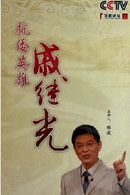 CCTV
百家讲坛
抗倭英雄
戚继光
主讲人：郦波